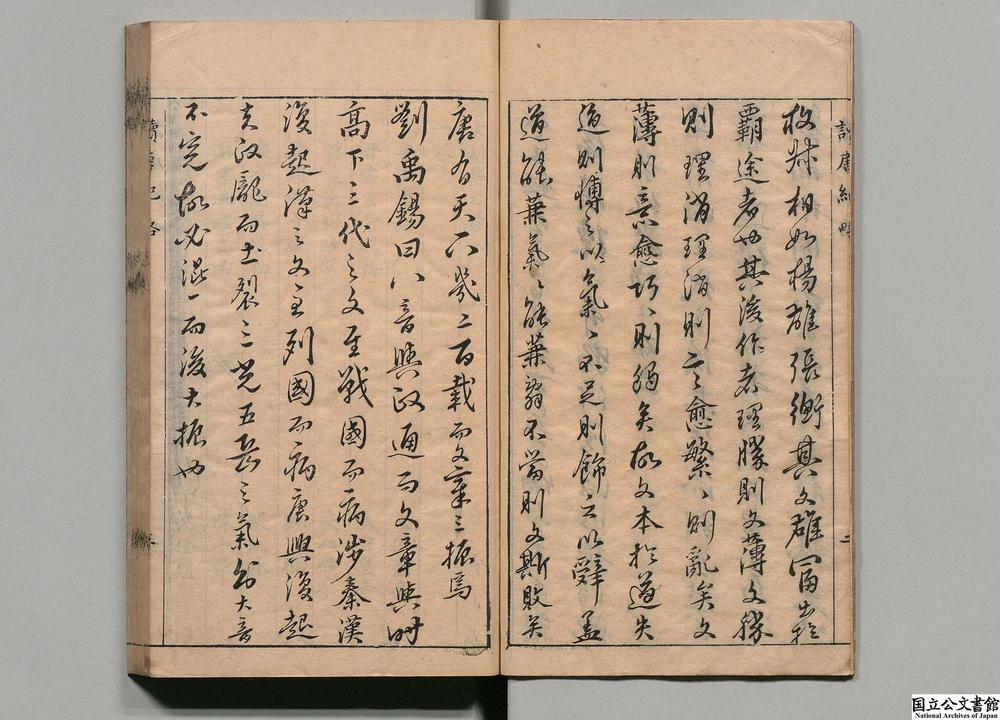 枚叔相如楊雄張衡其文雄富出於
覇途者也其後作者理勝則文薄文勝
則理消理消則言愈繁〻則亂矣文
薄則意愈巧〻則弱矣故文本於道失
道則博之以氣〻不足則飾之以辭蓋
道能兼氣〻能兼辭不當則文斯敗矣
唐有天下幾二百載而文章三振焉
劉禹錫曰八音與政通而文章與時
高下三代之文至戰國而病涉秦漢
復起漢之文至列國而病唐興復起
夫政龐而土裂三光五岳之氣分大音
不完故必混一而後大振也
讀唐紀略
二
讀唐紀略
国立公文書館
National Archives of Japan